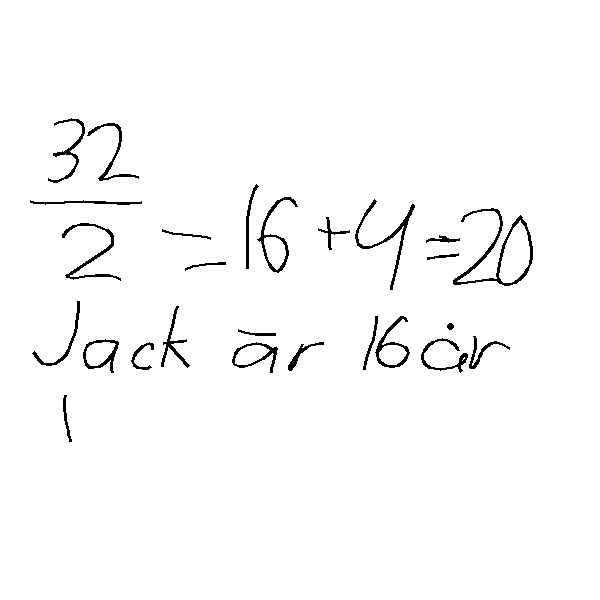 32/2 = 16 + 4 = 20
Jack är 16 år